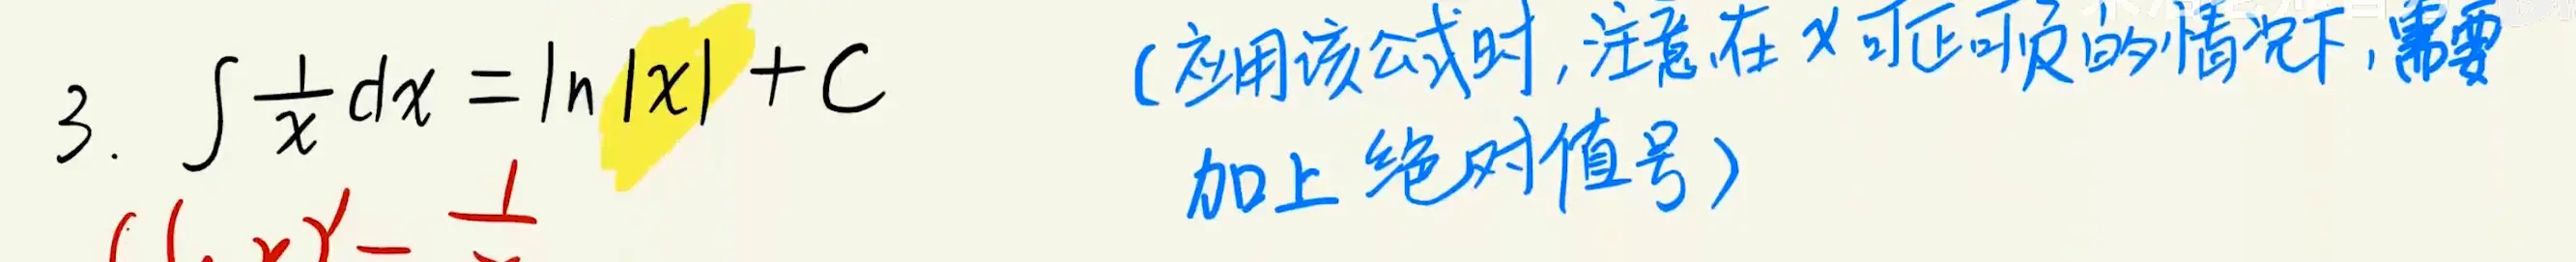 3. ∫ 1/x dx = ln|x| + C
(应用该公式时,注意在x可正可负的情况下,需要
加上绝对值号)